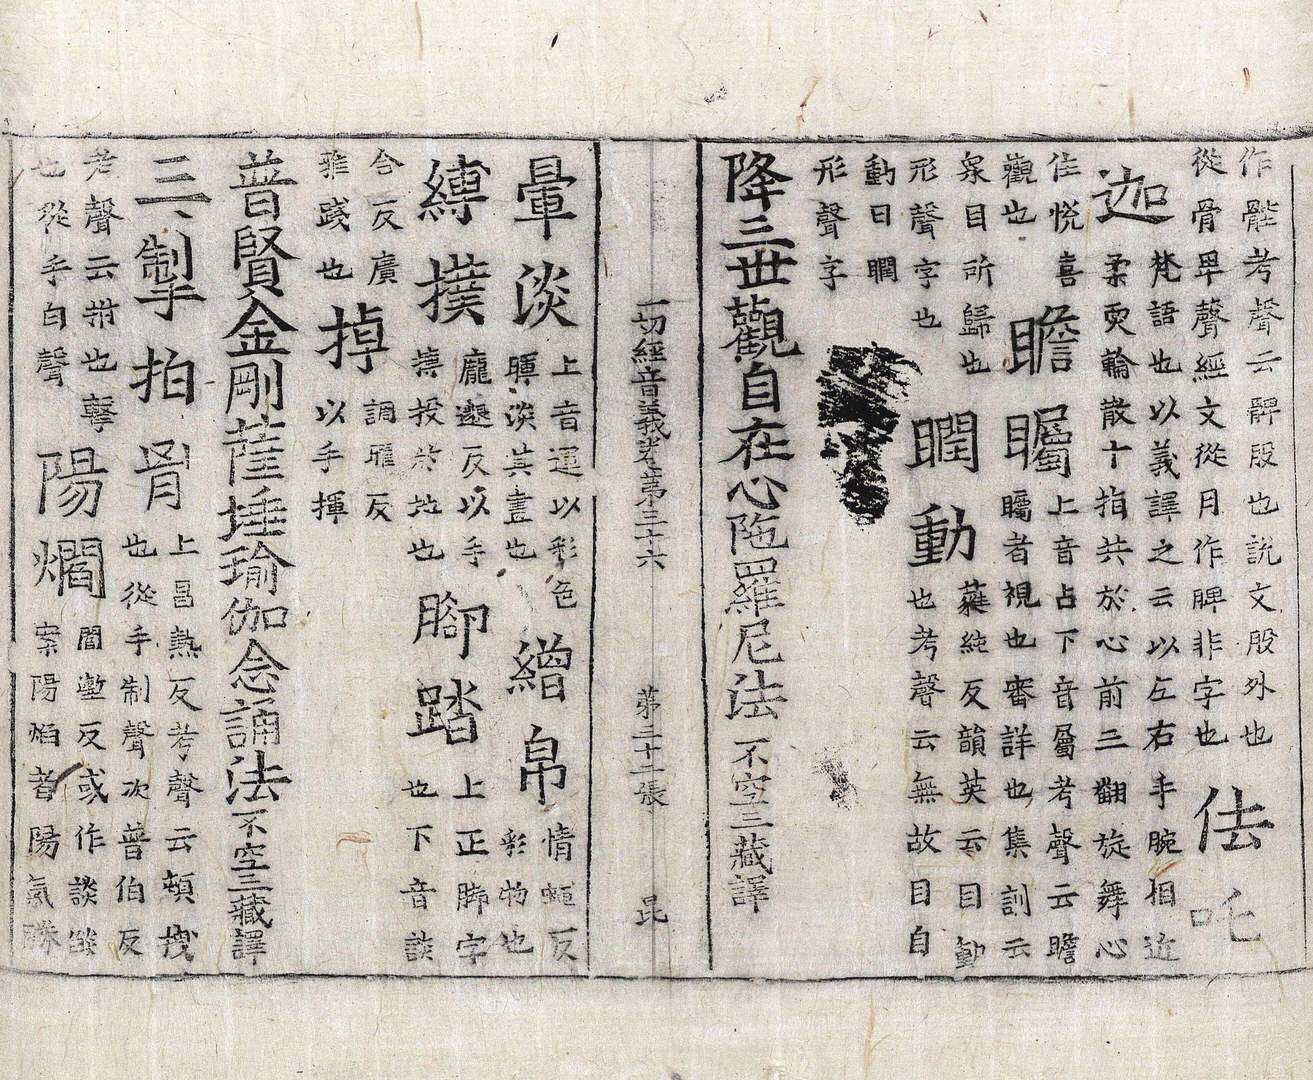 作䏶考聲云髀股也說文股外也
從骨卑聲經文從月作脾非字也 佉吒
迦 梵語也以義譯之云以左右手腕相近
柔耎輪散十指共於心前三翻旋舞心
住悅喜
觀也 瞻矚 上音占下音屬考聲云瞻
矚者視也審詳也集訓云
衆目所歸也
形聲字也 瞤動 蕤純反韻英云目動
也考聲云無故目自
動曰瞤
形聲字
降三世觀自在心陁羅尼法 不空三藏譯
一切經音義卷第三十六 第三十二張 昆
暈淡 上音運以彩色
暉淡其畫也 繒帛 情蠅反
彩物也
縛撲 龐邈反以手
投於地也 腳踏 上正脚字
也下音談
合反廣
雅踐也 掉 調雅反
以手揮
普賢金剛薩埵瑜伽念誦法 不空三藏譯
三掣拍 上昌熱反考聲云頓拽
也從手制聲次普伯反
考聲云拊也
也從手白聲 陽爓 閻塹反或作談燄
案陽焰者陽氣勝